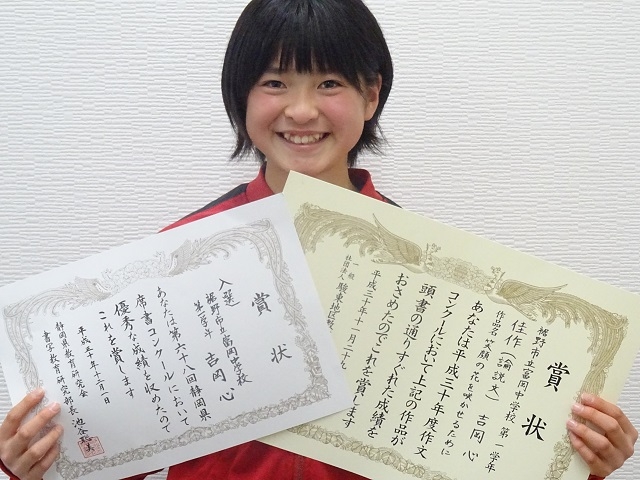 賞状
入選
裾野市立富岡中学校
第一学年
吉岡心
あなたは第六十八回静岡県
席書コンクールにおいて
優秀な成績を収めたので
これを賞します
平成三十年十二月一日
静岡県教育研究会
書写教育研究部長 池谷
賞状
裾野市立富岡中学校 第一学年
佳作(論説文) 吉岡心
作品名 笑顔の花を咲かせるために
あなたは平成三十年度作文
コンクールにおいて上記の作品が
頭書の通りすぐれた成績を
おさめたのでこれを賞します
平成三十年十一月二十九
一般
社団法人 駿東地区教